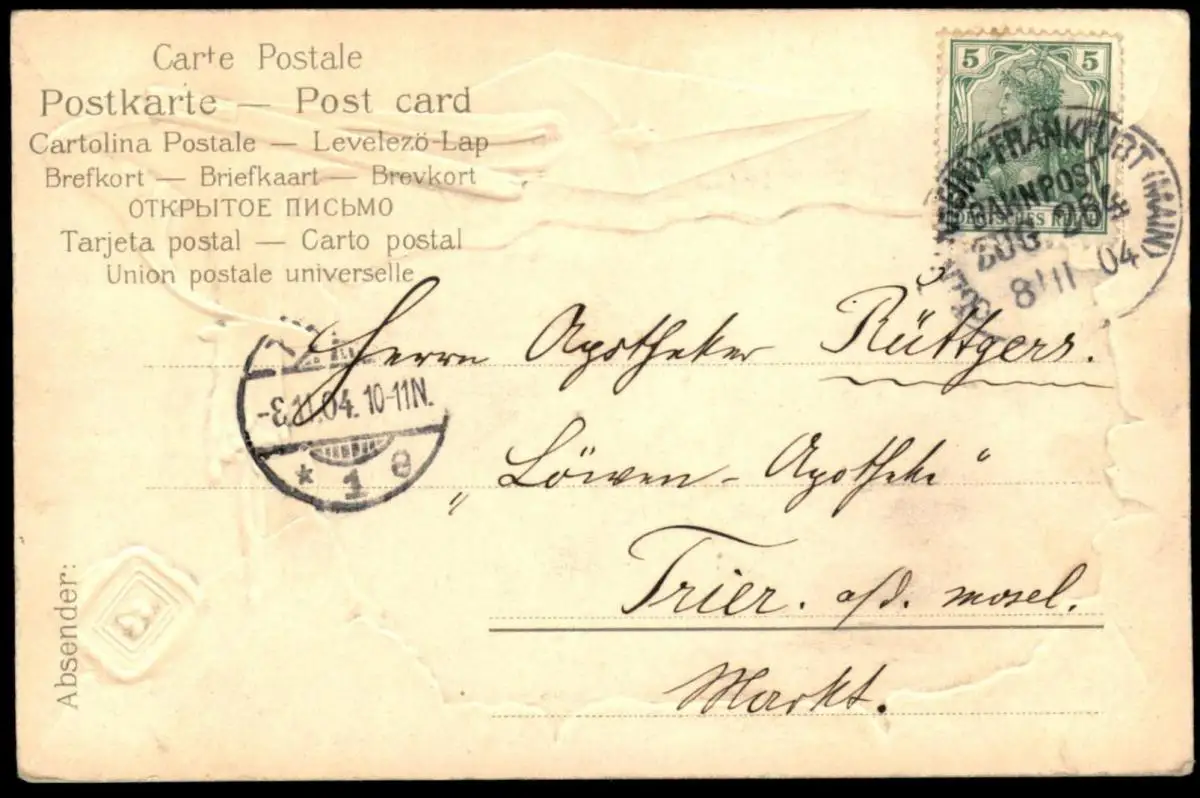 Carte Postale
Postkarte — Post card
Cartolina Postale — Levelezö-Lap
Brefkort — Briefkaart — Brevkort
ОТКРЫТОЕ ПИСЬМО
Tarjeta postal — Carto postal
Union postale universelle
5 5
DEUTSCHES REICH
FRANKFURT (MAIN)
BAHNPOST
ZUG
8 11 04
Herrn Apotheker Rüttgers.
-8.11.04. 10-11N.
* 1 e
„Löwen-Apotheke“
Trier. a/d. Mosel.
Markt.
Absender: